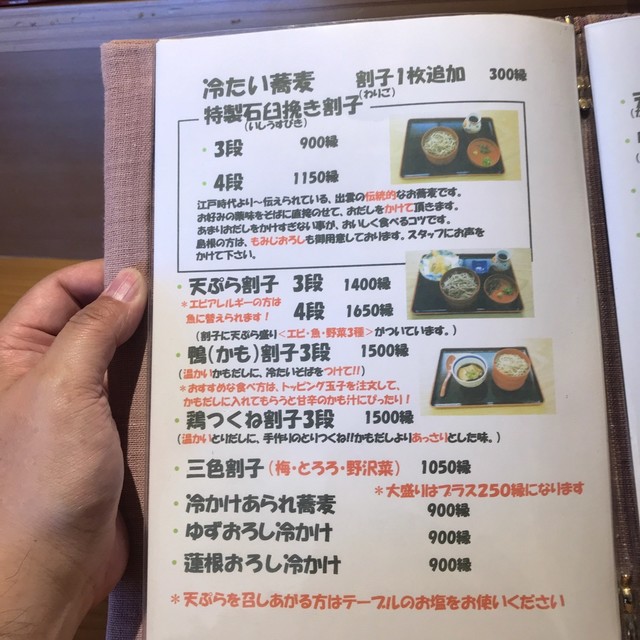 冷たい蕎麦 割子1枚追加 300縁
(わりこ)
特製石臼挽き割子
(いしうすびき)
・3段 900縁
・4段 1150縁
江戸時代より～伝えられている、出雲の伝統的なお蕎麦です。
お好みの薬味をそばに直接のせて、おだしをかけて頂きます。
あまりおだしをかけすぎない事が、おいしく食べるコツです。
島根の方は、もみじおろしも御用意しております。スタッフにお声を
かけて下さい。
・天ぷら割子 3段 1400縁
＊エビアレルギーの方は
魚に替えられます! 4段 1650縁
(割子に天ぷら盛り<エビ・魚・野菜3種>がついています。)
・鴨(かも)割子3段 1500縁
(温かいかもだしに、冷たいそばをつけて!!)
＊おすすめな食べ方は、トッピング玉子を注文して、
かもだしに入れてもらうと甘辛のかも汁にぴったり!
・鶏つくね割子3段 1500縁
(温かいとりだしに、手作りのとりつくね!!かもだしよりあっさりとした味。)
・三色割子(梅・とろろ・野沢菜) 1050縁
＊大盛りはプラス250縁になります
・冷かけあられ蕎麦 900縁
・ゆずおろし冷かけ 900縁
・蓮根おろし冷かけ 900縁
＊天ぷらを召しあがる方はテーブルのお塩をお使いください